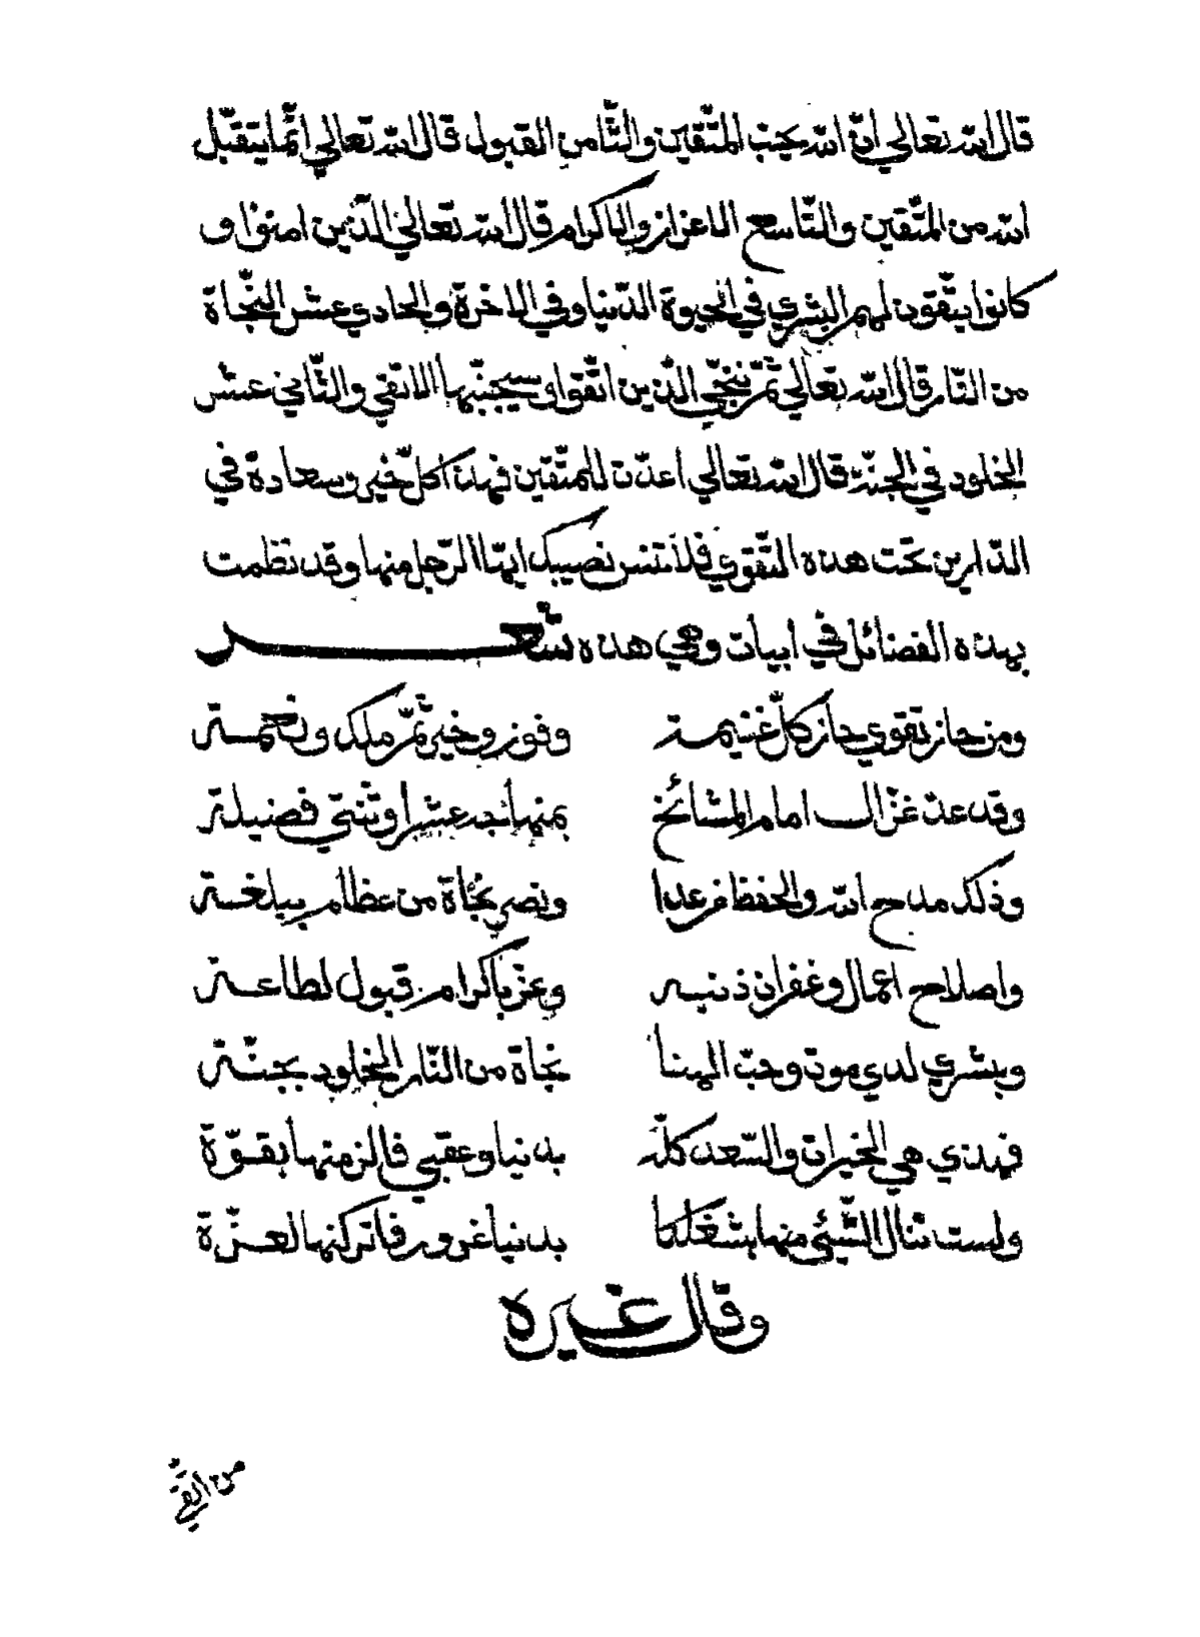 قال الله تعالي انّ الله يحبّ المتّقين والثّامن القبول قال الله تعالي انّما يتقبّل
الله من المتّقين والتّاسع الاعزاز والاكرام قال الله تعالي الّذين امنوا و
كانوا يتّقون لهم البشري في الحيوة الدّنيا وفي الاخرة والحادي عشر النّجاة
من النّار قال الله تعالي ثمّ ننجّي الّذين اتّقوا وسيجنّبها الاتقي والثّاني عشر
الخلود في الجنّة قال الله تعالي اعدّت للمتّقين فهذا كلّ خير وسعادة في
الدّارين تحت هذه التّقوي فلا تنس نصيبك ايّها الرّجل منها وقد نظمت
بهذه الفضائل في ابيات وهي هذه شعر
ومن حاز تقوي حاز كلّ غنيمة وفوز وخير ثمّ ملك ونعمة
وقد عدّ غزّال امام المشائخ بمنها نجد عشرا وثنتي فضيلة
وذلك مدح الله والحفظ من عدا ونصر نجاة من عظام ببلغة
واصلاح اعمال وغفران ذنبه وعزّ باكرام قبول لطاعة
وبشري لدي موت وحبّ الهنا نجاة من النّار الخلود بجنّة
فهذي هي الخيرات والسّعد كلّه بدنيا وعقبي فالزمنها بقوّة
ولست تنال الشّيئ منها بشغلكا بدنيا غرور فاتركنها لعزّة
وقال غيره
من التقي